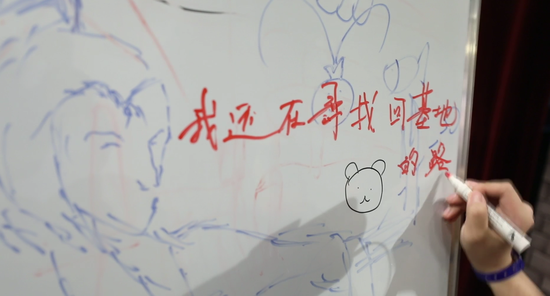 我还在寻找回基地
的路